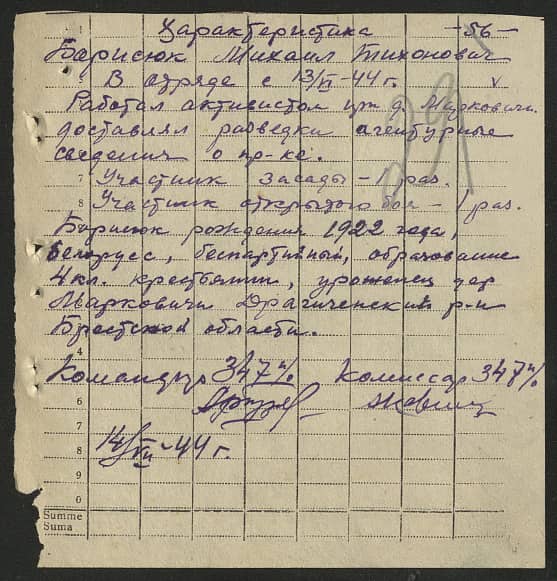 Характеристика -56-
Барисюк Михаил Тихонович
В отряде с 13/III-44 г. v
Работал активистом при д. Марковичи.
доставлял разведки агентурные
сведения о пр-ке.
7 Участник засады - 1 раз.
8 Участник открытого боя - 1 раз.
Борисюк рождения 1922 года,
белорусс, беспартийный, образование
4 кл. крестьянин, уроженец дер
Марковичи Драгиченский р-н
Брестской области.
4
Командир 347 п/о Комиссар 347 п/о
6
14/VII-44 г.
8
9
0
Summe
Suma